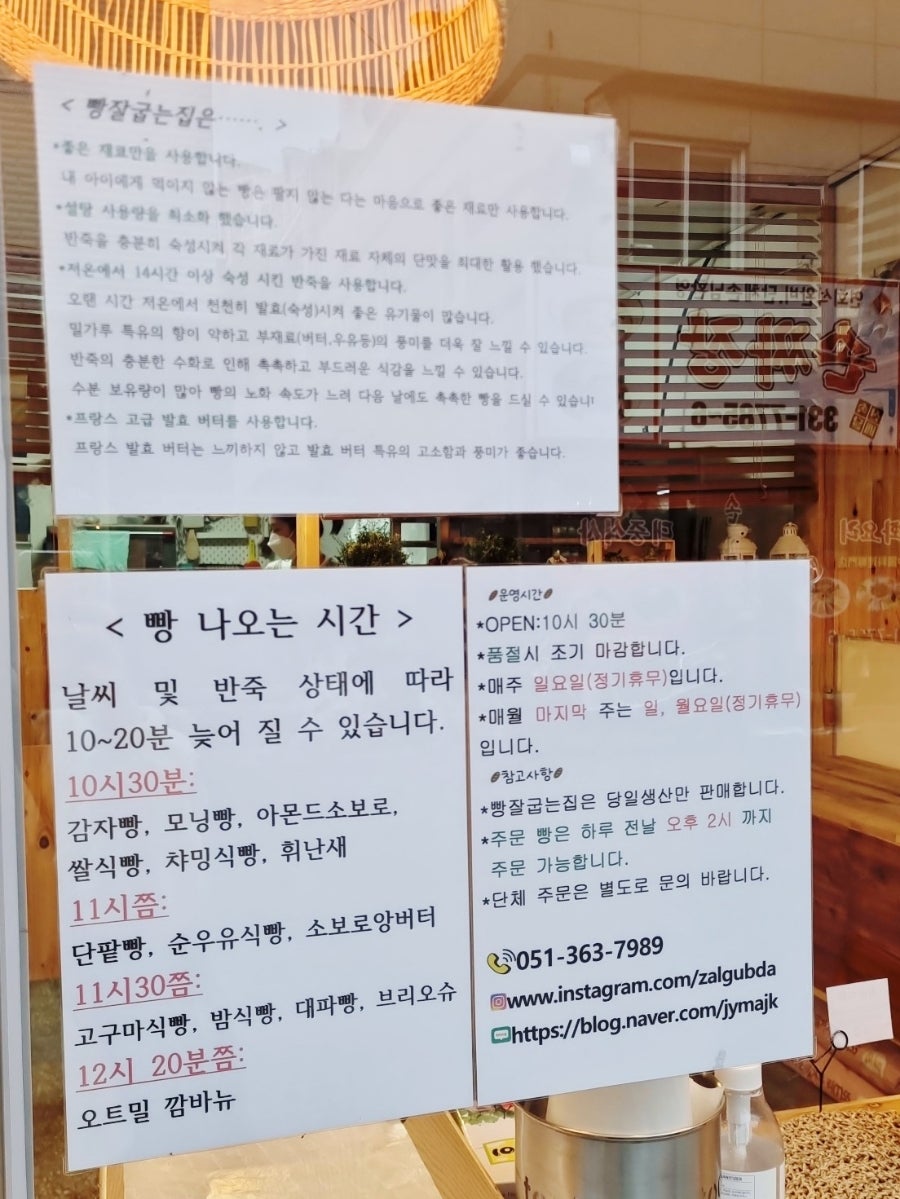 < 빵잘굽는집은……. >
*좋은 재료만을 사용합니다.
내 아이에게 먹이지 않는 빵은 팔지 않는 다는 마음으로 좋은 재료만 사용합니다.
*설탕 사용량을 최소화 했습니다.
반죽을 충분히 숙성시켜 각 재료가 가진 재료 자체의 단맛을 최대한 활용 했습니다.
*저온에서 14시간 이상 숙성 시킨 반죽을 사용합니다.
오랜 시간 저온에서 천천히 발효(숙성)시켜 좋은 유기물이 많습니다.
밀가루 특유의 향이 약하고 부재료(버터,우유등)의 풍미를 더욱 잘 느낄 수 있습니다.
반죽의 충분한 수화로 인해 촉촉하고 부드러운 식감을 느낄 수 있습니다.
수분 보유량이 많아 빵의 노화 속도가 느려 다음 날에도 촉촉한 빵을 드실 수 있습니
*프랑스 고급 발효 버터를 사용합니다.
프랑스 발효 버터는 느끼하지 않고 발효 버터 특유의 고소함과 풍미가 좋습니다.
< 빵 나오는 시간 >
날씨 및 반죽 상태에 따라
10~20분 늦어 질 수 있습니다.
10시30분:
감자빵, 모닝빵, 아몬드소보로,
쌀식빵, 챠밍식빵, 휘난새
11시쯤:
단팥빵, 순우유식빵, 소보로앙버터
11시30쯤:
고구마식빵, 밤식빵, 대파빵, 브리오슈
12시 20분쯤:
오트밀 깜바뉴
운영시간
*OPEN:10시 30분
*품절시 조기 마감합니다.
*매주 일요일(정기휴무)입니다.
*매월 마지막 주는 일, 월요일(정기휴무)
입니다.
참고사항
*빵잘굽는집은 당일생산만 판매합니다.
*주문 빵은 하루 전날 오후 2시 까지
주문 가능합니다.
*단체 주문은 별도로 문의 바랍니다.
051-363-7989
www.instagram.com/zalgubda
https://blog.naver.com/jymajk